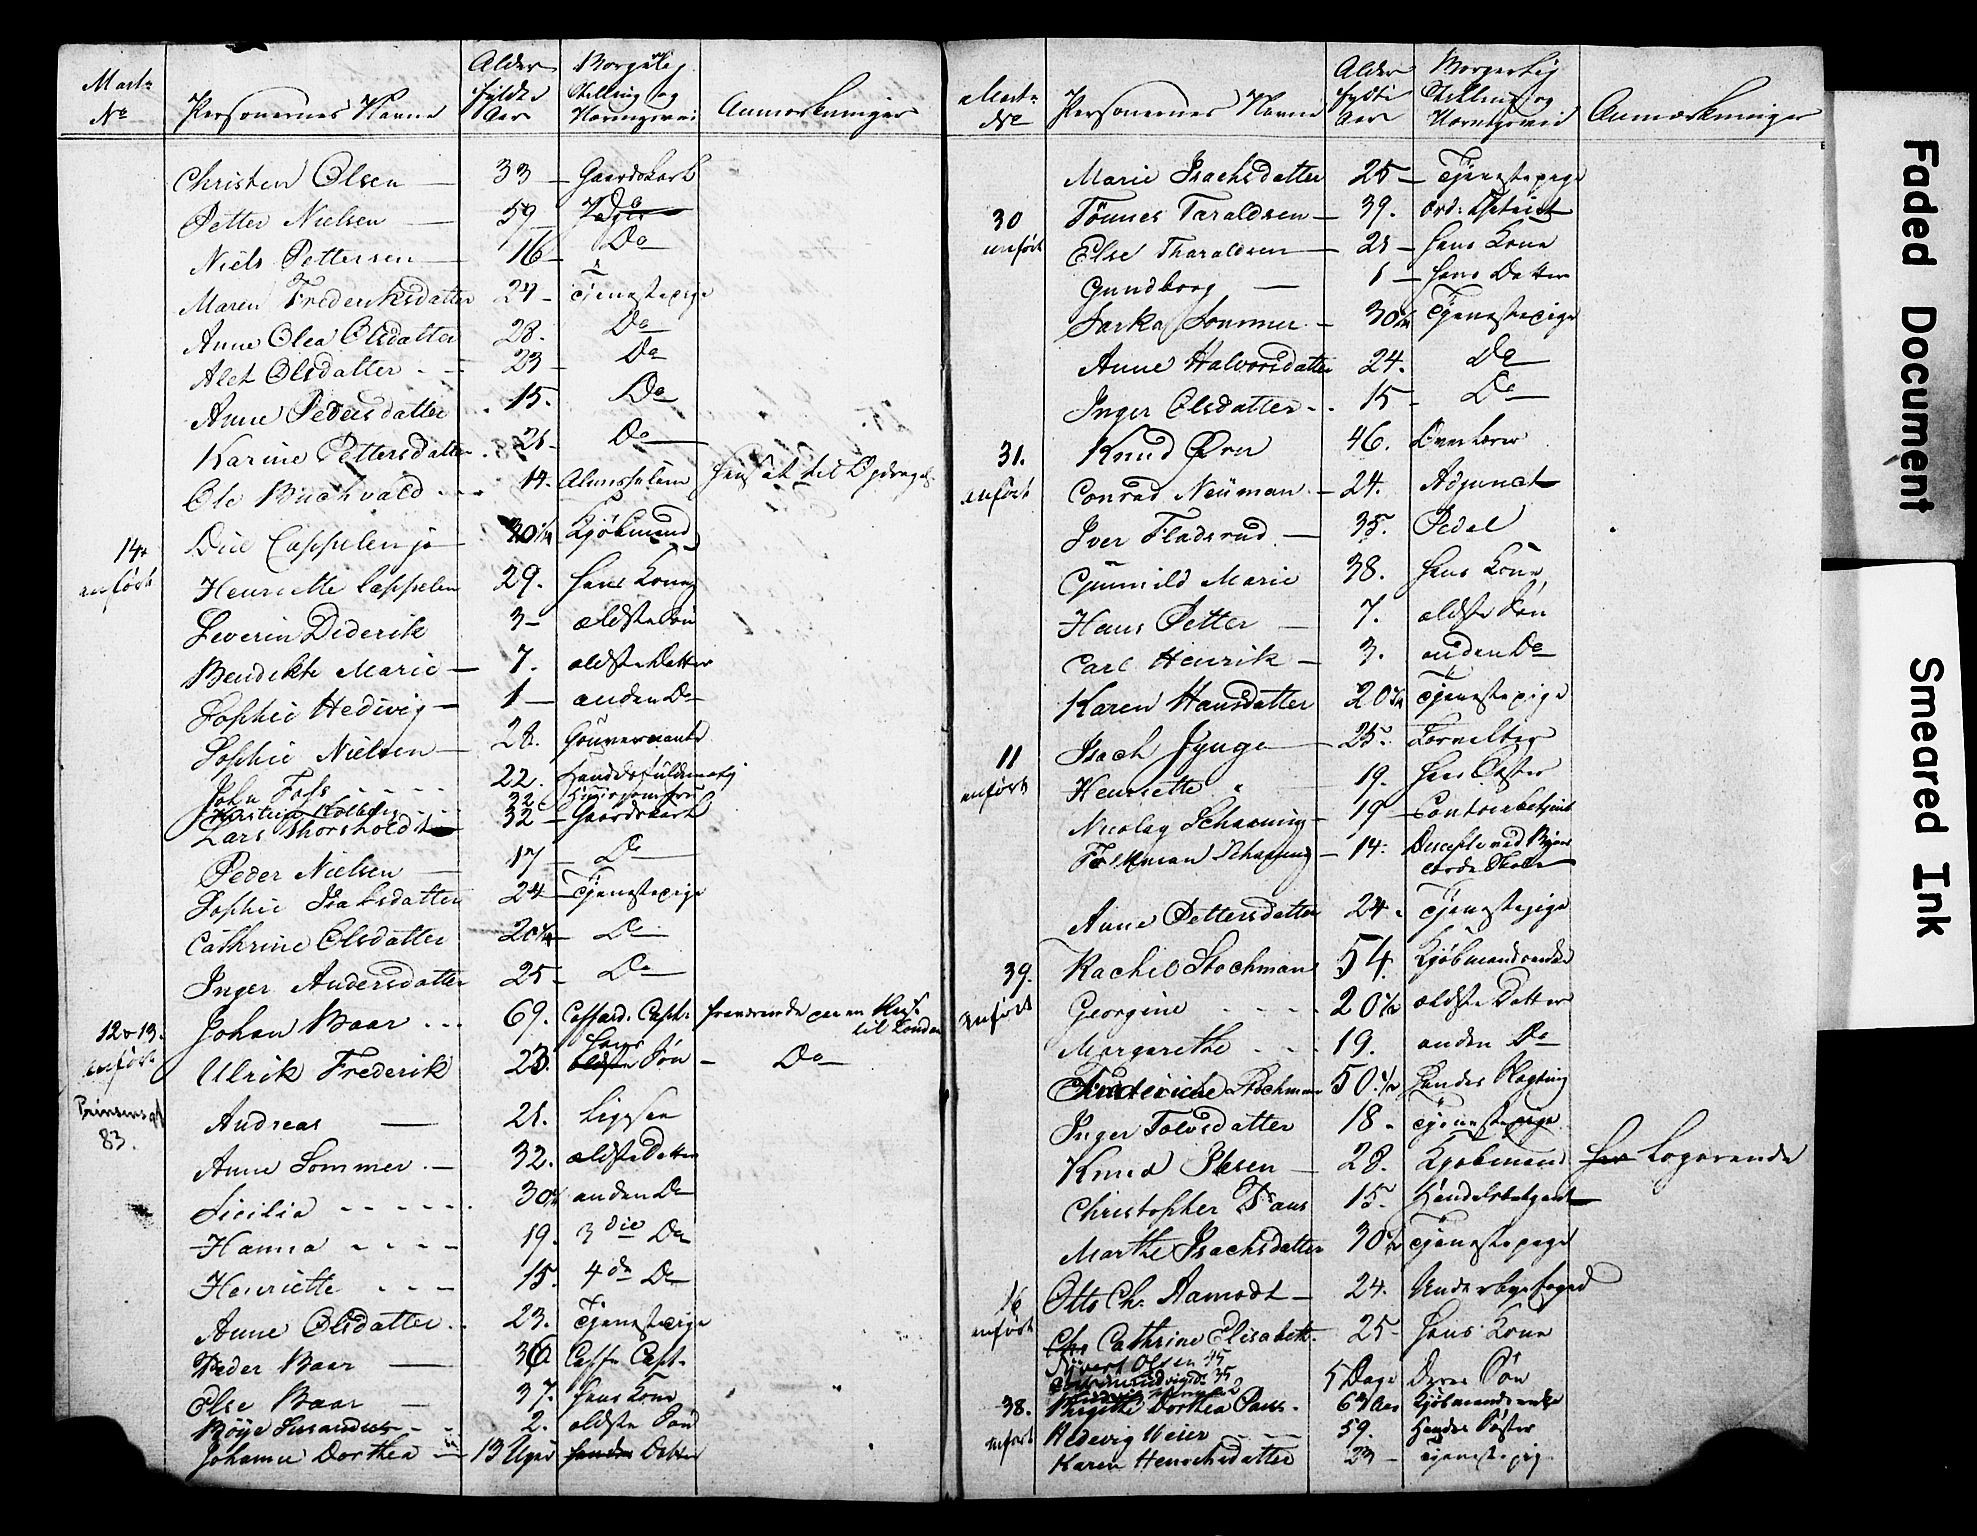 Mart: No | Personernes Navne | Alder fyldte Aar | Borgerlig Stilling og Næringsvei | Anmærkninger
Christen Olsen — 33 — Gaardskarl
Petter Nielsen — 59 — Do
Niels Pettersen — 16 — Do
Maren Frederiksdatter 24 — Tjenestepige
Anne Olea Olsdatter 28. Do
Alet Olsdatter - - 23 — Do
Anne Pedersdatter . 15. Do
Karine Pettersdatter . 21 Do
Ole Buchvald - - - 14. hensat til
14. Did Cappelen jr — 30 1/2 Kjøbmand
anført Henriette Cappelen 29. hans Kone
Severin Diderik 3 — ældste Søn
Bendikte Marie — 7. ældste Datter
Sophie Hedivig — 1 — anden Do
Sophie Nielsen — 28. Gouvernante
John Foss - - - - 22. Handelsfuldmægtig
32
Lars Thorsholdt 32 — Gaardskarl
Peder Nielsen — 17 — Do
Sophie Isaksdatter 24 — Tjenestepige
Cathrine Olsdatter 20 1/2 — Do
Inger Andersdatter 25 — Do
12 & 13. Johan Baar - - - 69. Coffard. Capt: fraværende paa en Reise til London
anført Ulrik Frederik 23. hans Søn — Do
Prinsensgt 83. Andreas — 21. Ligesaa
Anne Sommer. — 32. ældste Datter
Sicilia - - - - - . 30 1/2 anden Do
Hanna - - - - 19. 3die Do
Henriette - - - 15. 4de Do
Anne Olsdatter. . 23. Tjenestepige
Peder Baar — Coffr Capt.
Else Baar — 37. hans Kone
Böye - - 2. ældste Søn
Johanne Dorthea — 13 Uger Datter
Mart: No | Personernes Navne | Alder fyldte Aar | Borgerlig Stilling og Næringsvei | Anmærkninger
Marie Isachsdatter 25 — Tjenestepige
30 Tönnes Taraldsen — 39.
anført Else Tharaldsen — 21 — hans Kone
Gundborg — 1 — hans Datter
Sommer - 30 1/2 Tjenestepige
Anne Halvorsdatter 24. Do
Inger Olsdatter - . 15 - Do
31. Knud Örn 46. Overlærer
anført Conrad Neuman. — 24. Adjunct
Iver Fladsrud. — 35. Pedel
Gunnild Marie 38. hans Kone
Hans Petter — 7. ældste Søn
Carl Henrik — 3. anden Do
Karen Hansdatter 20 1/2 Tjenestepige
11 Isach Jynge — 25. Forvalter
anført Henriette " 19. hans Søster
Nicolay Schanning — 19 — Contoirbetjent
Schanning — 14. Discipel ved
Anne Pettersdatter 24 . Tjenestepige
39. Rachel Stochman 54. Kjøbmandsenke
anført Georgine - - - - 20 1/2 ældste Datter
Margarethe - - - 19. anden Do
Frederiche Stochman 50. 1/2 hendes Slægtning
Inger Tolvsdatter 18 - Tjenestepige
Knud Ibsen — 28. Kjøbmand Logerende
Christopher Paus 15. Handelsbetjent
Marthe Isachsdatter 30 1/2 Tjenestepige
16 Otto Ch. Aamodt — 24. Underbyefoged
anført Cathrine Elisabeth. 25 — hans Kone
Sivert Olsen 45
35
5 Dage Deres Søn
38. Birgitte Dorthea Paus. Kjøbmandsenke
anført Hedevig Meier - - - 59. hendes Søster
Karen Henrichsdatter 23 — Tjenestepige
Faded Document
Smeared Ink